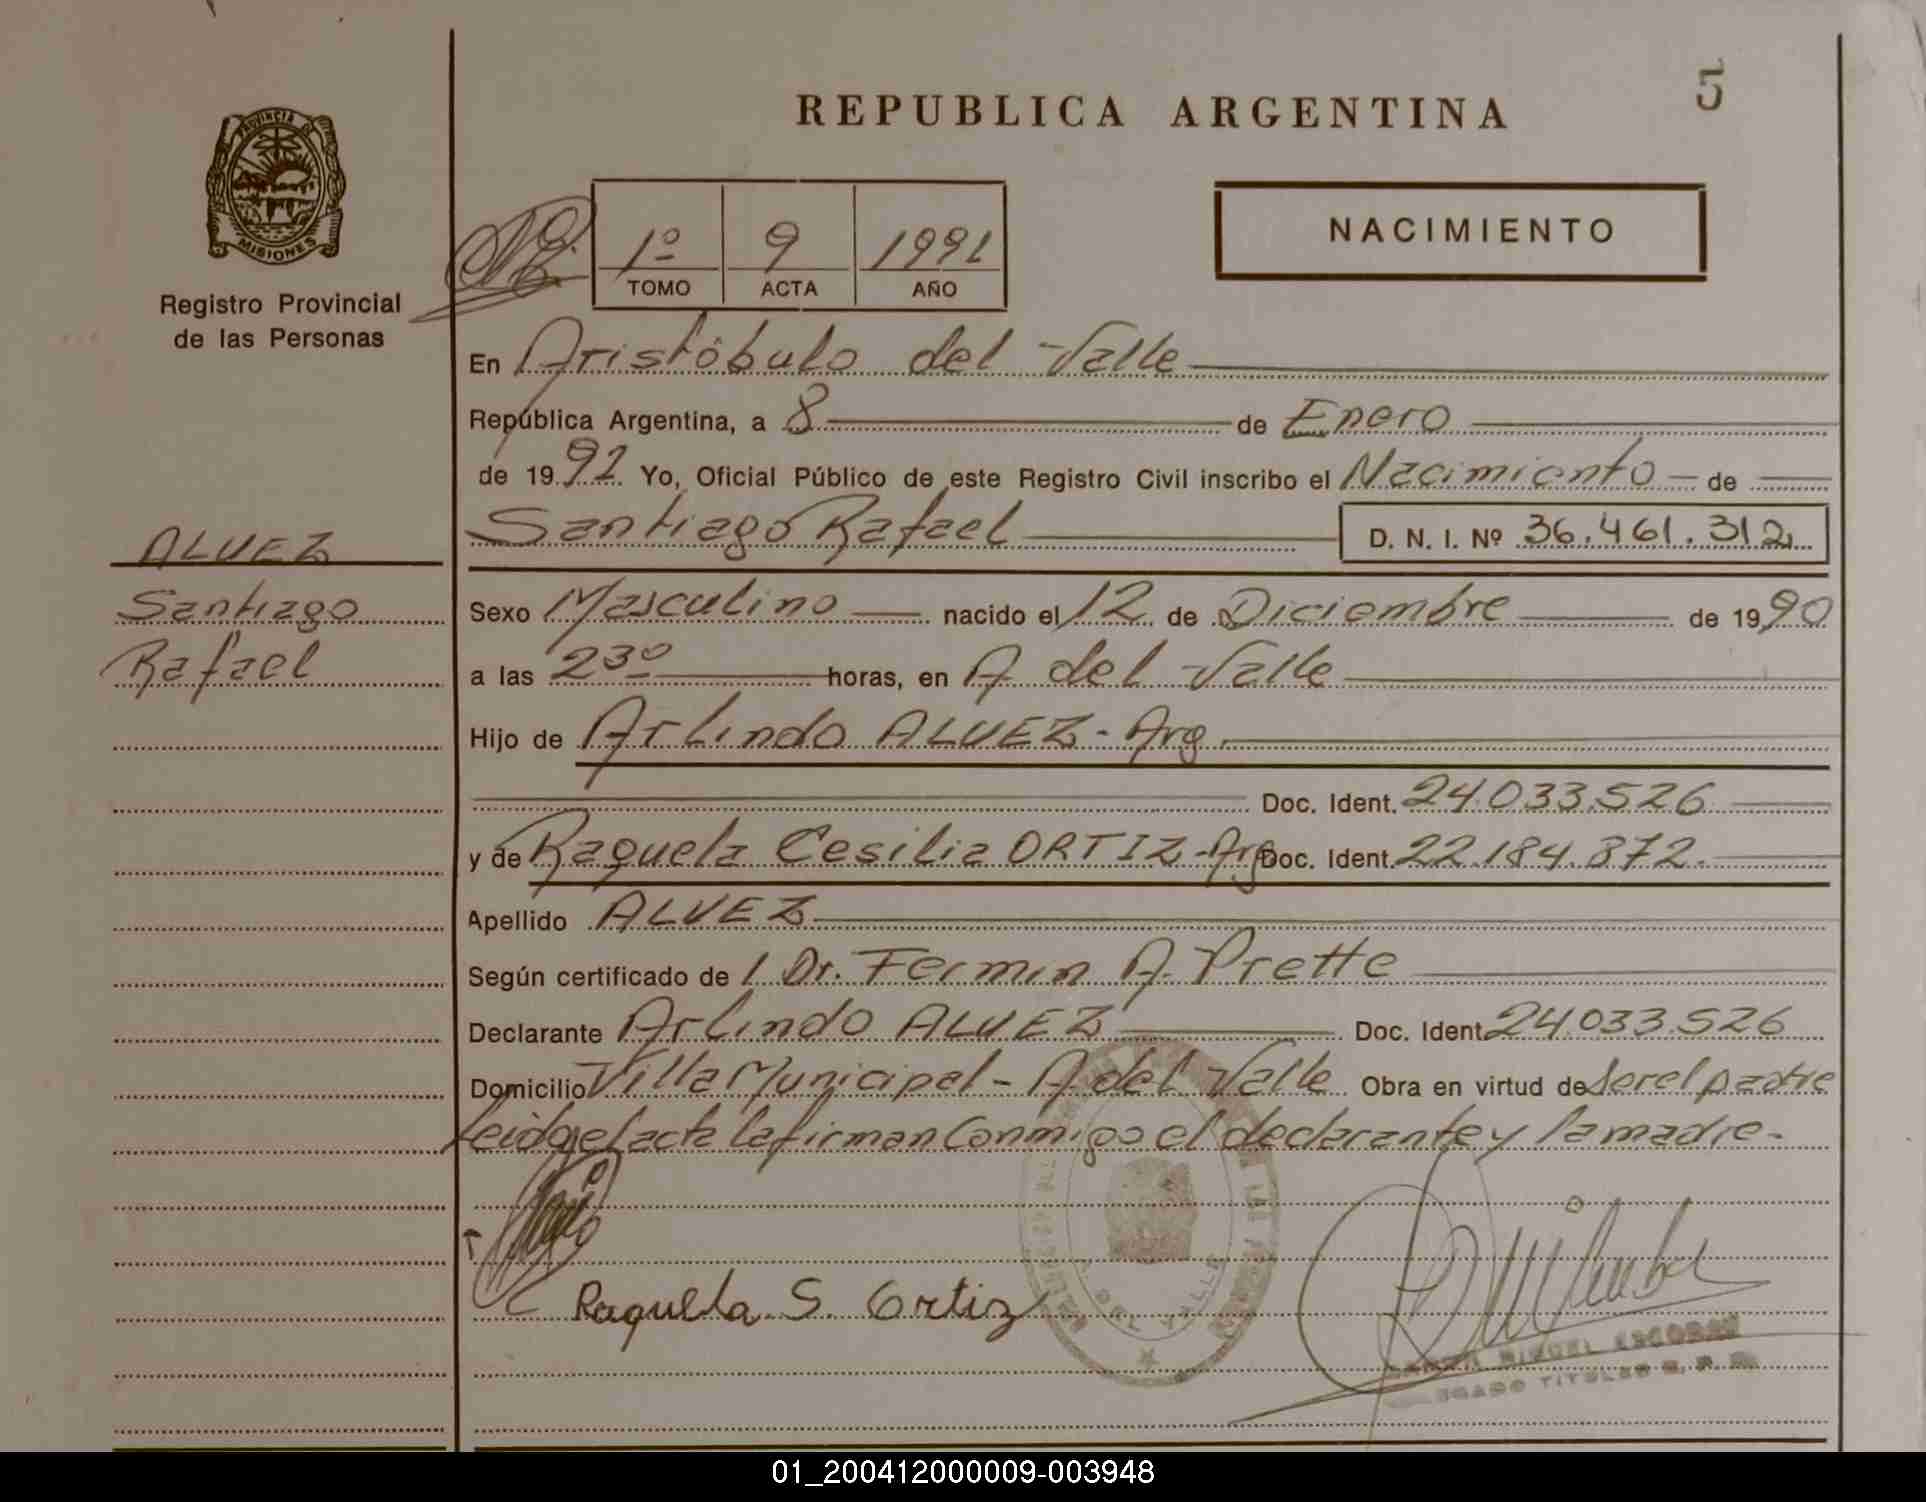 5
REPUBLICA ARGENTINA
PROVINCIA DE
MISIONES
Registro Provincial
de las Personas
1º 9 1991
TOMO ACTA AÑO
NACIMIENTO
En Aristóbulo del Valle
República Argentina, a 8 de Enero
de 1991 Yo, Oficial Público de este Registro Civil inscribo el Nacimiento de
Santiago Rafael D. N. I. Nº 36.461.312
ALVEZ
Santiago
Rafael
Sexo Masculino nacido el 12 de Diciembre de 1990
a las 23º horas, en A del Valle
Hijo de Arlindo ALVEZ - Arg.
Doc. Ident. 24.033.526
y de Raquela Cesilia ORTIZ - Arg Doc. Ident. 22.184.372.
Apellido ALVEZ
Según certificado de / Dr. Fermin A. Prette
Declarante Arlindo ALVEZ Doc. Ident. 24.033.526
Domicilio Villa Municipal - A del Valle Obra en virtud de ser el padre
Leida el acta la firman conmigo el declarante y la madre -
Raquela S. Ortiz
MIGUEL ESCOBAR
TITULAR
DEL VALLE
01_200412000009-003948